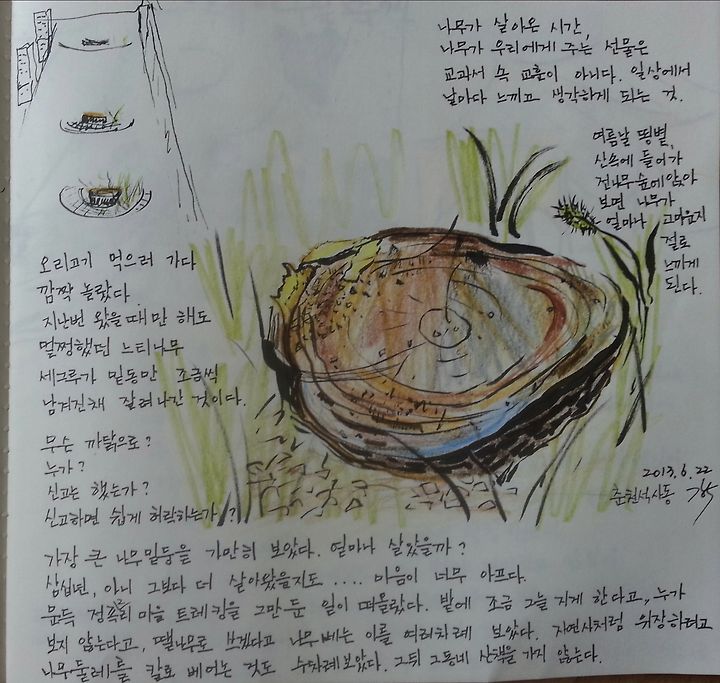 나무가 살아온 시간,
나무가 우리에게 주는 선물은
교과서 속 교훈이 아니다. 일상에서
날마다 느끼고 생각하게 되는 것.
여름날 땡볕,
산속에 들어가
전나무 숲에 앉아
보면 나무가
얼마나 고마운지
절로
느끼게
된다.
오리고기 먹으러 가다
깜짝 놀랐다
지난번 왔을 때만 해도
멀쩡했던 느티나무
세그루가 밑동만 조금씩
남겨진채 잘려나간 것이다.
무슨 까닭으로?
누가?
신고는 했는가?
신고하면 쉽게 허락하는가?
2013.6.22
춘천석사동
가장 큰 나무밑둥을 가만히 보았다. 얼마나 살았을까?
삼십년, 아니 그보다 더 살아왔을지도 .... 마음이 너무 아프다.
문득 마을 트레킹을 그만둔 일이 떠올랐다. 밭에 조금 그늘 지게 한다고, 누가
보지 않는다고, 땔나무로 쓰겠다고 나무 베는 이를 여러차례 보았다. 자연사처럼 위장하려고
나무둘레를 칼로 베어논 것도 수차례보았다. 그뒤 그동네 산책을 가지 않는다.